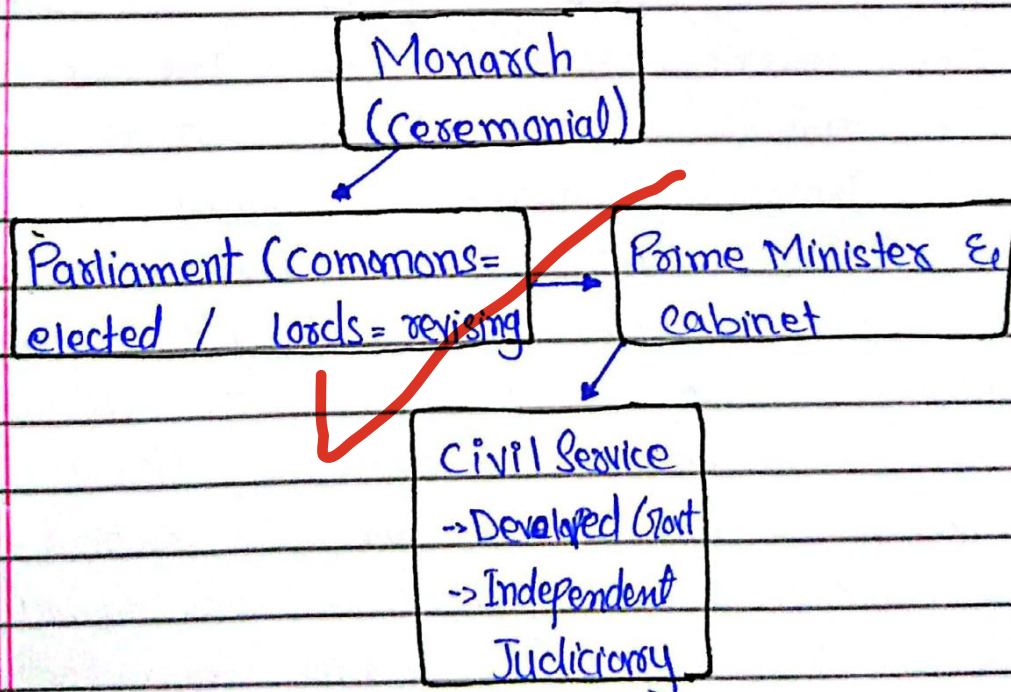 Monarch
(ceremonial)
Parliament (commons=
elected / lords = revising
Prime Minister &
cabinet
Civil Service
→ Developed Govt
→ Independent
Judiciary